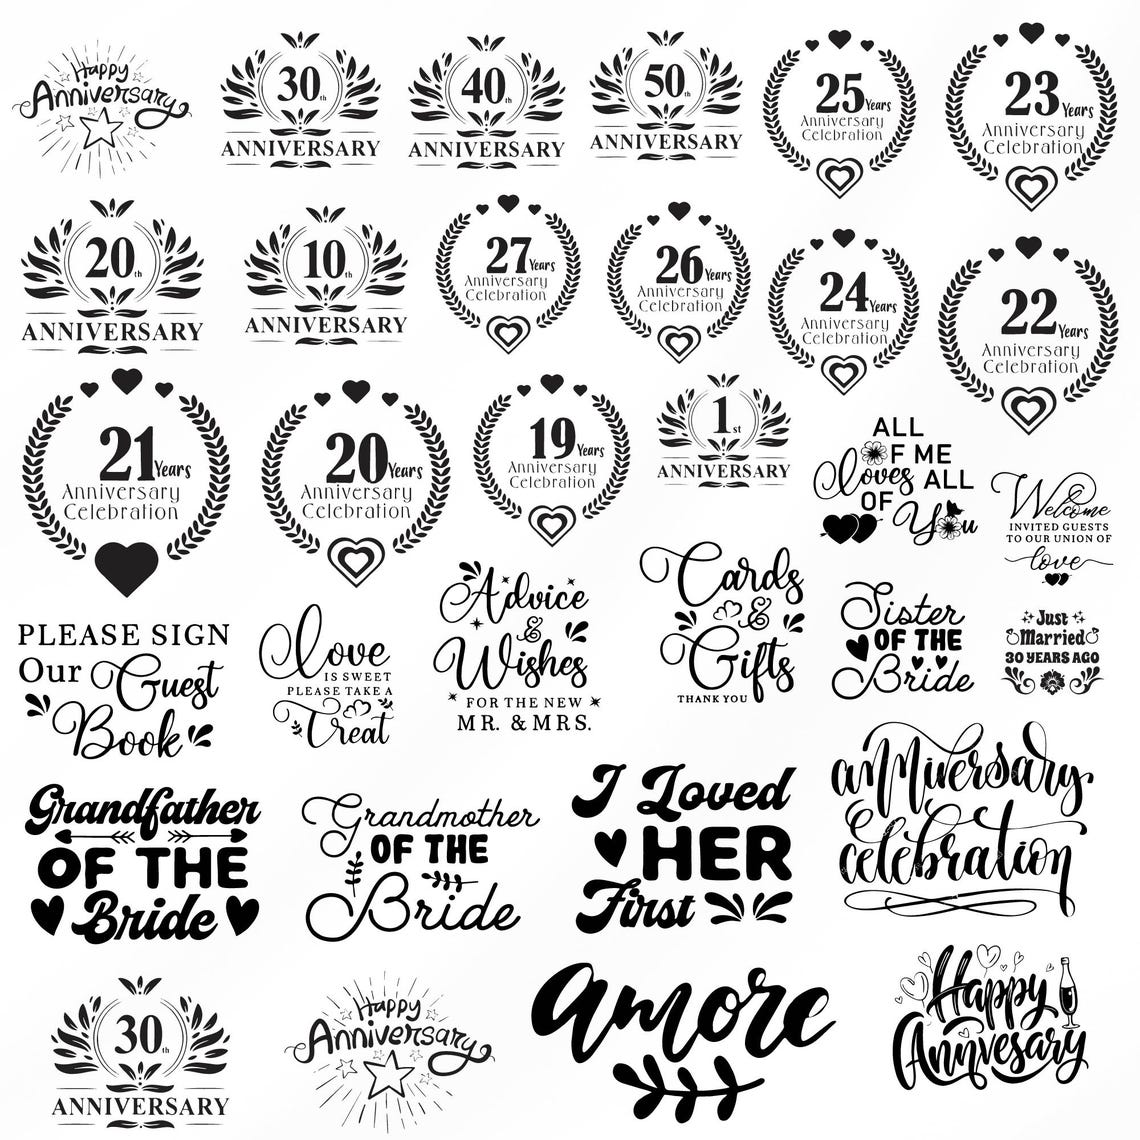 Happy
Anniversary
30th
ANNIVERSARY
40th
ANNIVERSARY
50th
ANNIVERSARY
25 Years
Anniversary
Celebration
23 Years
Anniversary
Celebration
20th
ANNIVERSARY
10th
ANNIVERSARY
27 Years
Anniversary
Celebration
26 Years
Anniversary
Celebration
24 Years
Anniversary
Celebration
22 Years
Anniversary
Celebration
21 Years
Anniversary
Celebration
20 Years
Anniversary
Celebration
19 Years
Anniversary
Celebration
1st
ANNIVERSARY
ALL
OF ME
loves ALL
OF You
Welcome
INVITED GUESTS
TO OUR UNION OF
love
PLEASE SIGN
Our Guest
Book
Love
IS SWEET
PLEASE TAKE A
Treat
Advice
&
Wishes
FOR THE NEW
MR. & MRS.
Cards
&
Gifts
THANK YOU
Sister
OF THE
Bride
Just
Married
30 YEARS AGO
Grandfather
OF THE
Bride
Grandmother
OF THE
Bride
I Loved
HER
First
anniversary
celebration
30th
ANNIVERSARY
Happy
Anniversary
amore
Happy
Annvesary